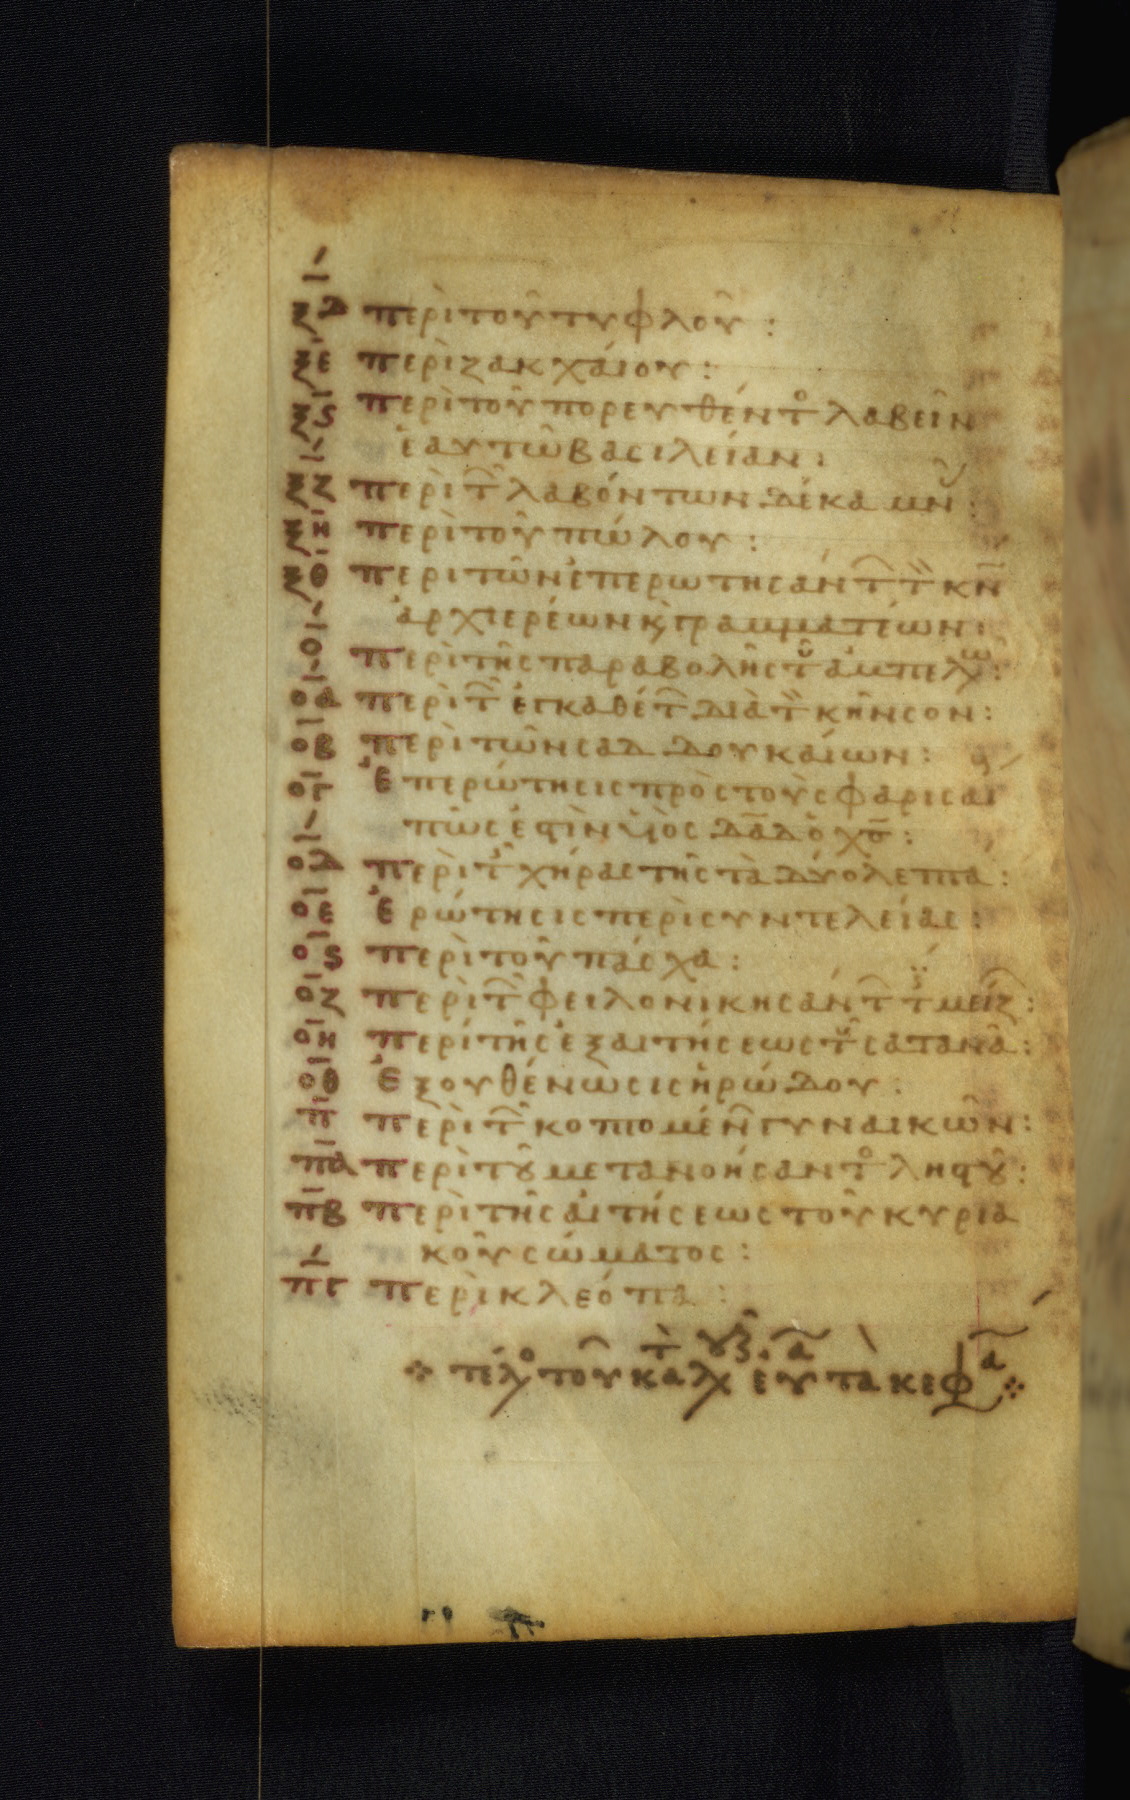 ξδ περὶ τοῦ τυφλοῦ :
ξε περὶ ζακχάιου :
ξϛ περὶ τοῦ πορευθέντ λαβεῖν
ἑαυτῶ βασιλείαν :
ξζ περὶ τ λαβόντων δέκα μν :
ξη περὶ τοῦ πώλου :
ξθ περι τῶν ἐπερωτησάντ τ κν
ἀρχιερέων κ γραμματέων :
ο περὶ τῆς παραβολῆς τ ἀμπελ :
οα περὶ τ ἐγκαθέτ διὰ τ κῆνσον :
οβ περὶ τῶν σαδδουκαίων :
ογ Ἐπερώτησις πρὸς τοὺς φαρισαι
πῶς ἐστὶν υἱος δαδ ὁ χσ :
οδ περὶ τ χήρας τῆς τὰ δύο λεπτα :
οε Ἐρώτησις περὶ συντελείας :
οϛ περὶ τοῦ πάσχα :
οζ περὶ τ φειλονικησάντ τ μείζ :
οη περὶ τῆς ἐξαιτήσεως τ σατανᾶ :
οθ Ἐξουθένωσις ἡρώδου :
π περὶ τ κοπτομέν γυναικῶν :
πα περὶ τȣ μετανοήσαντ ληστȣ :
πβ περὶ τῆς αἰτήσεως τοῦ κυρια
κοῦ σώματος :
πγ περὶ κλεόπα :
τέλ τοῦ κα λκ ευ τὰ κεφα